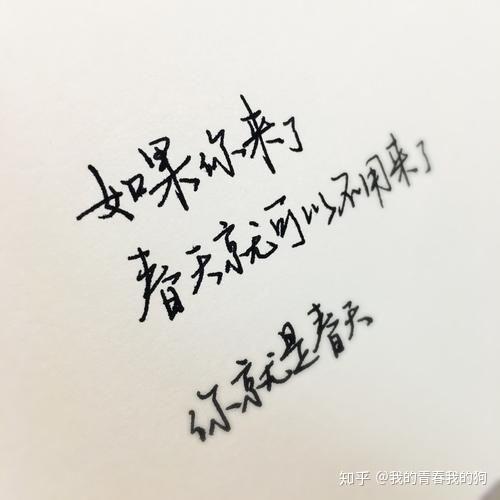 如果你来了
春天就可以不用来了
你就是春天
知乎 @我的青春我的狗